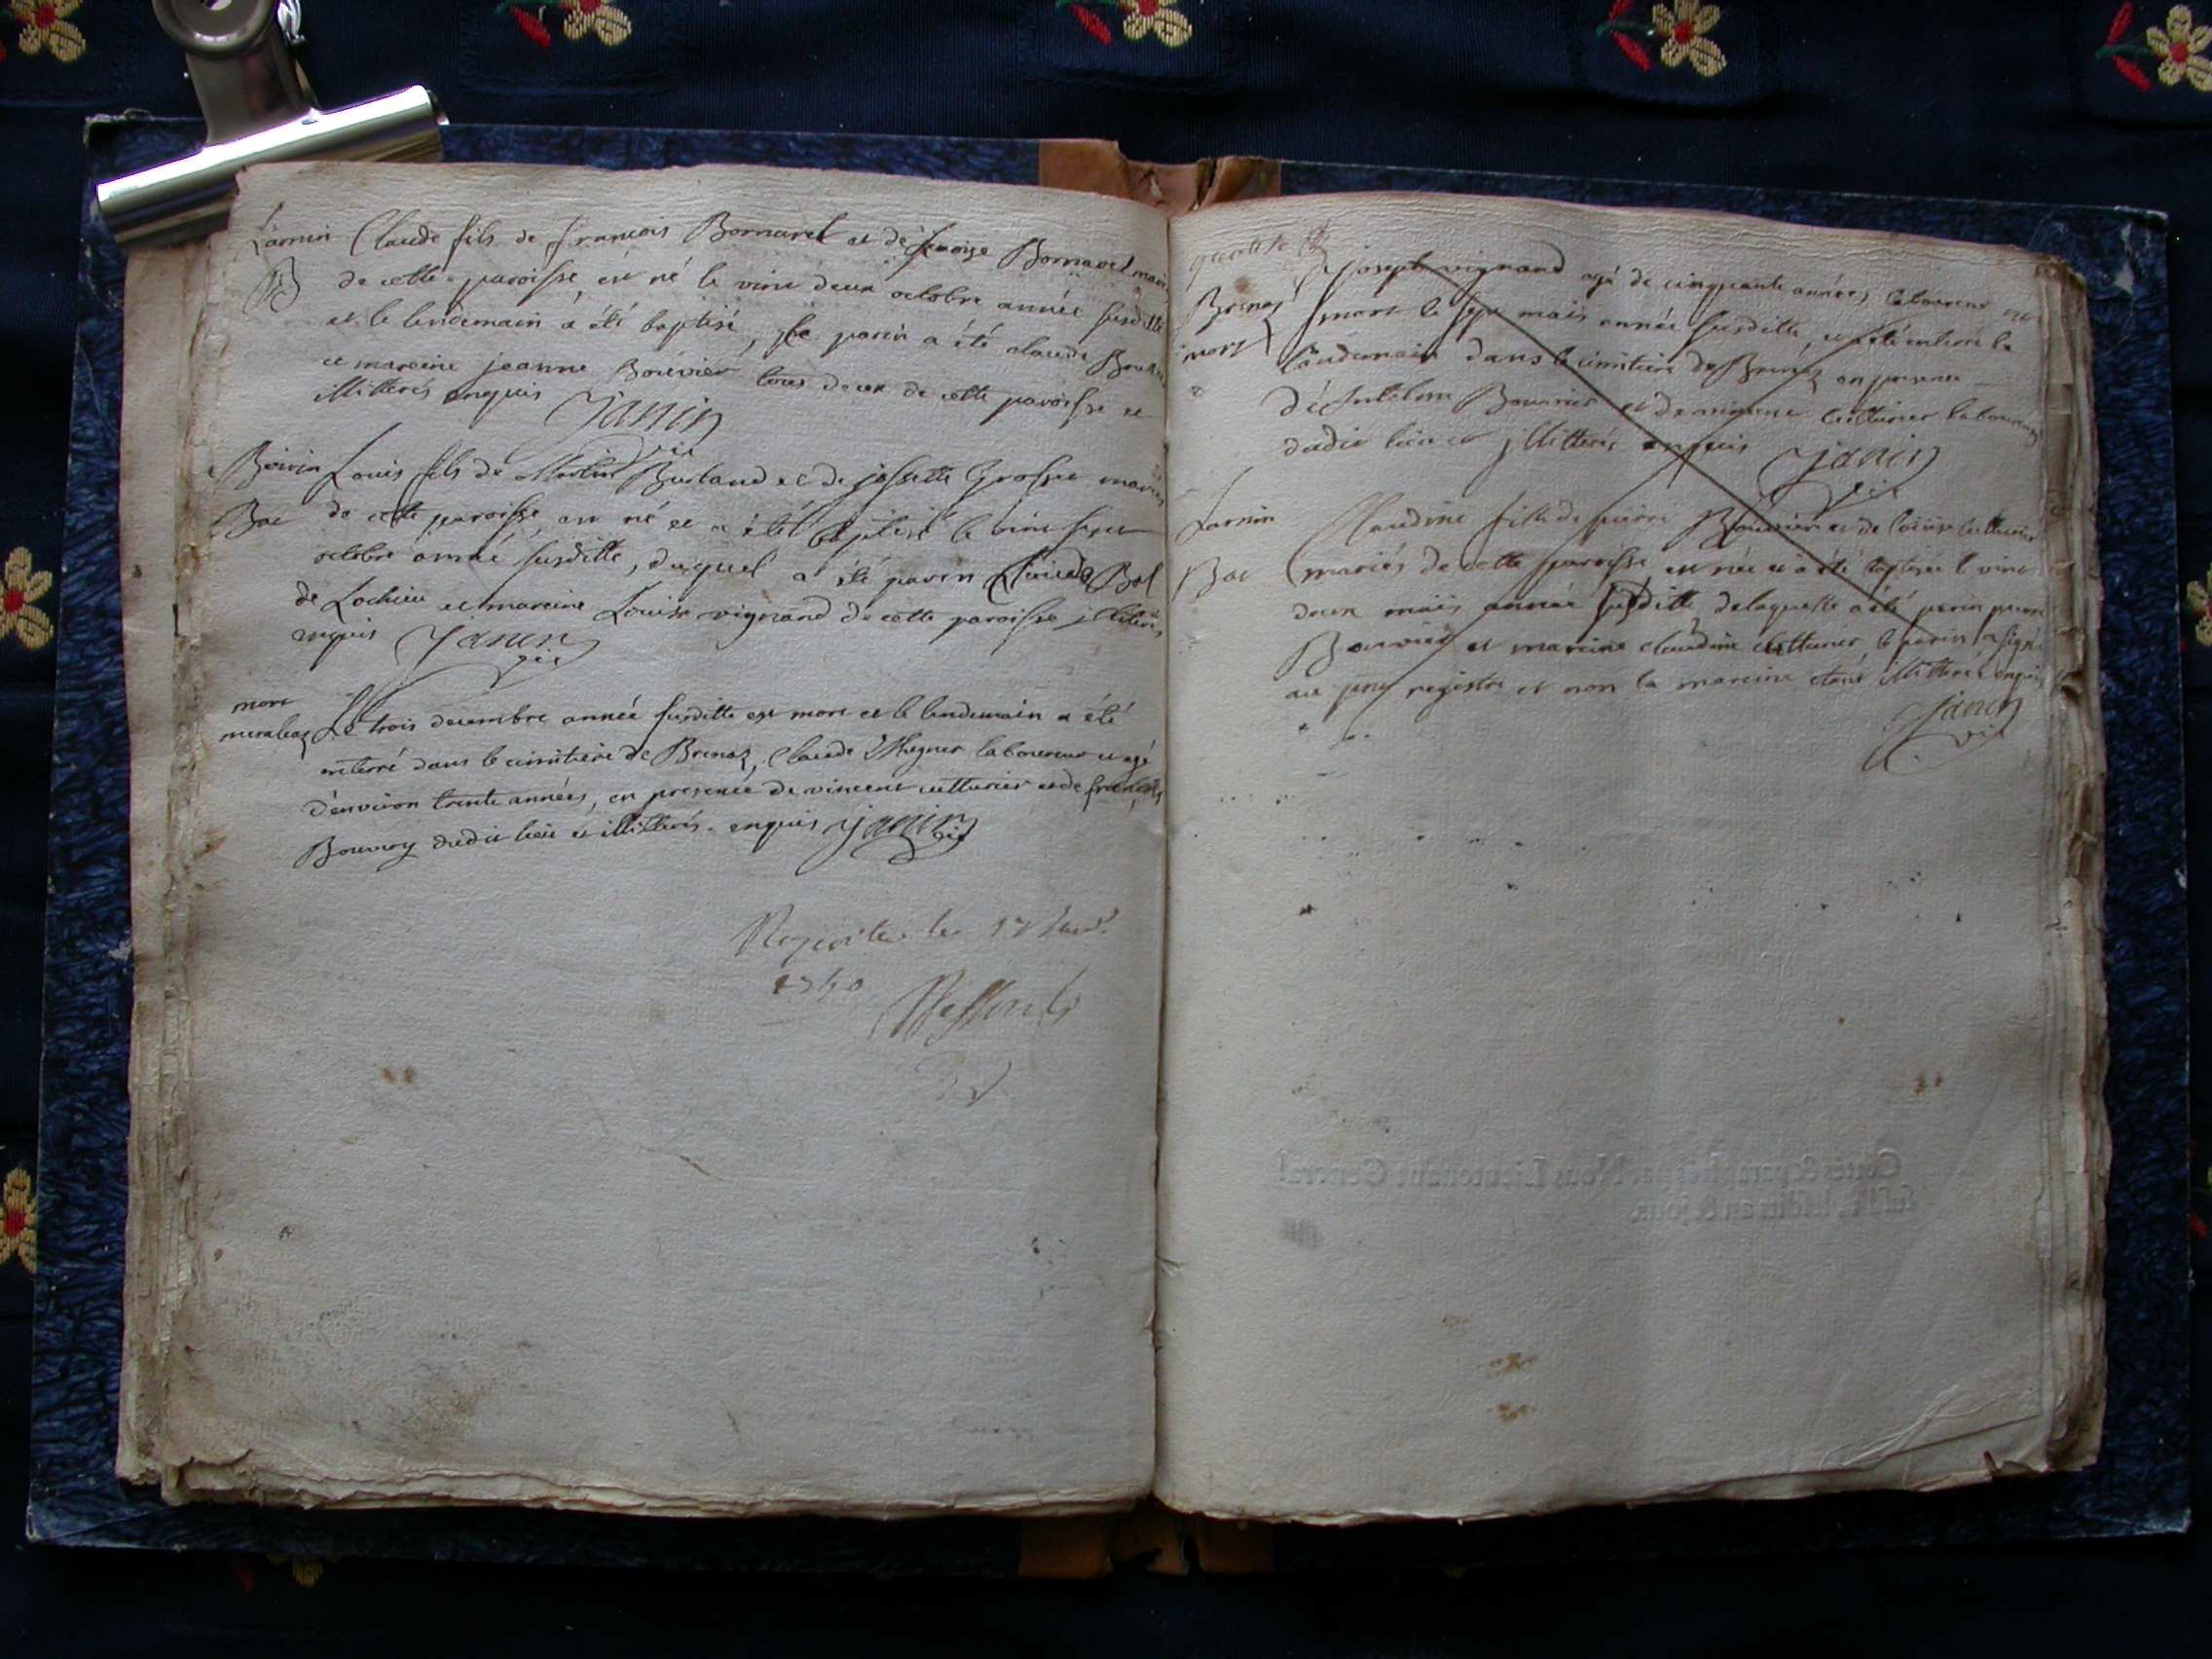 Larnin Claude fils de francois Bornarel et de Bornarel mariés
B de cette paroisse, est né le vint deux octobre année susditte
et le lendemain a été baptisé, le parin a été claude
et mareine jeanne Bouvier tous deux de cette paroisse et
illitterés enquis Janin
vic
Louis fils de Burland et de josette Grosset mariés
Bae de cette paroisse, est né et a été baptisé le vint sept
octobre année susditte, duquel a été parin Claude Bal
de Lochieu et mareine Louise vignand de cette paroisse illiterés
enquis Janin
vic
mort Le trois decembre année susditte est mort et le lendemain a été
enterré dans le cimitiere de Brenaz, Claude laboureur et agé
d'environ trente années, en presence de vincent cutturier et de francois
Bouvroy dudit lieu et illitterés enquis Janin vic
le 17
1740
joseph vignand agé de cinquante années laboureur est
Brenaz mort le sept mais année susditte, et a été enterré le
mort landemain dans le cimitiere de Brenaz en presence
d'Antelme Bouvier et de cutturier laboureurs
dudit lieu et jllitterés enquis Janin
vic
Larnin Claudine fille de pierre Bouvier et de louise cutturier
Bae mariés de cette paroisse est née et a été baptisée le vint
deux mais année susditte, delaquelle a été parin pierre
Bouvier et mareine claudine cutturier, le parin a signé
au registre et non la mareine etant illitterée enquis
Janin
vic
Cotté & paraphé par Nous Lieutenant General
susdit, lesdits an & jour.